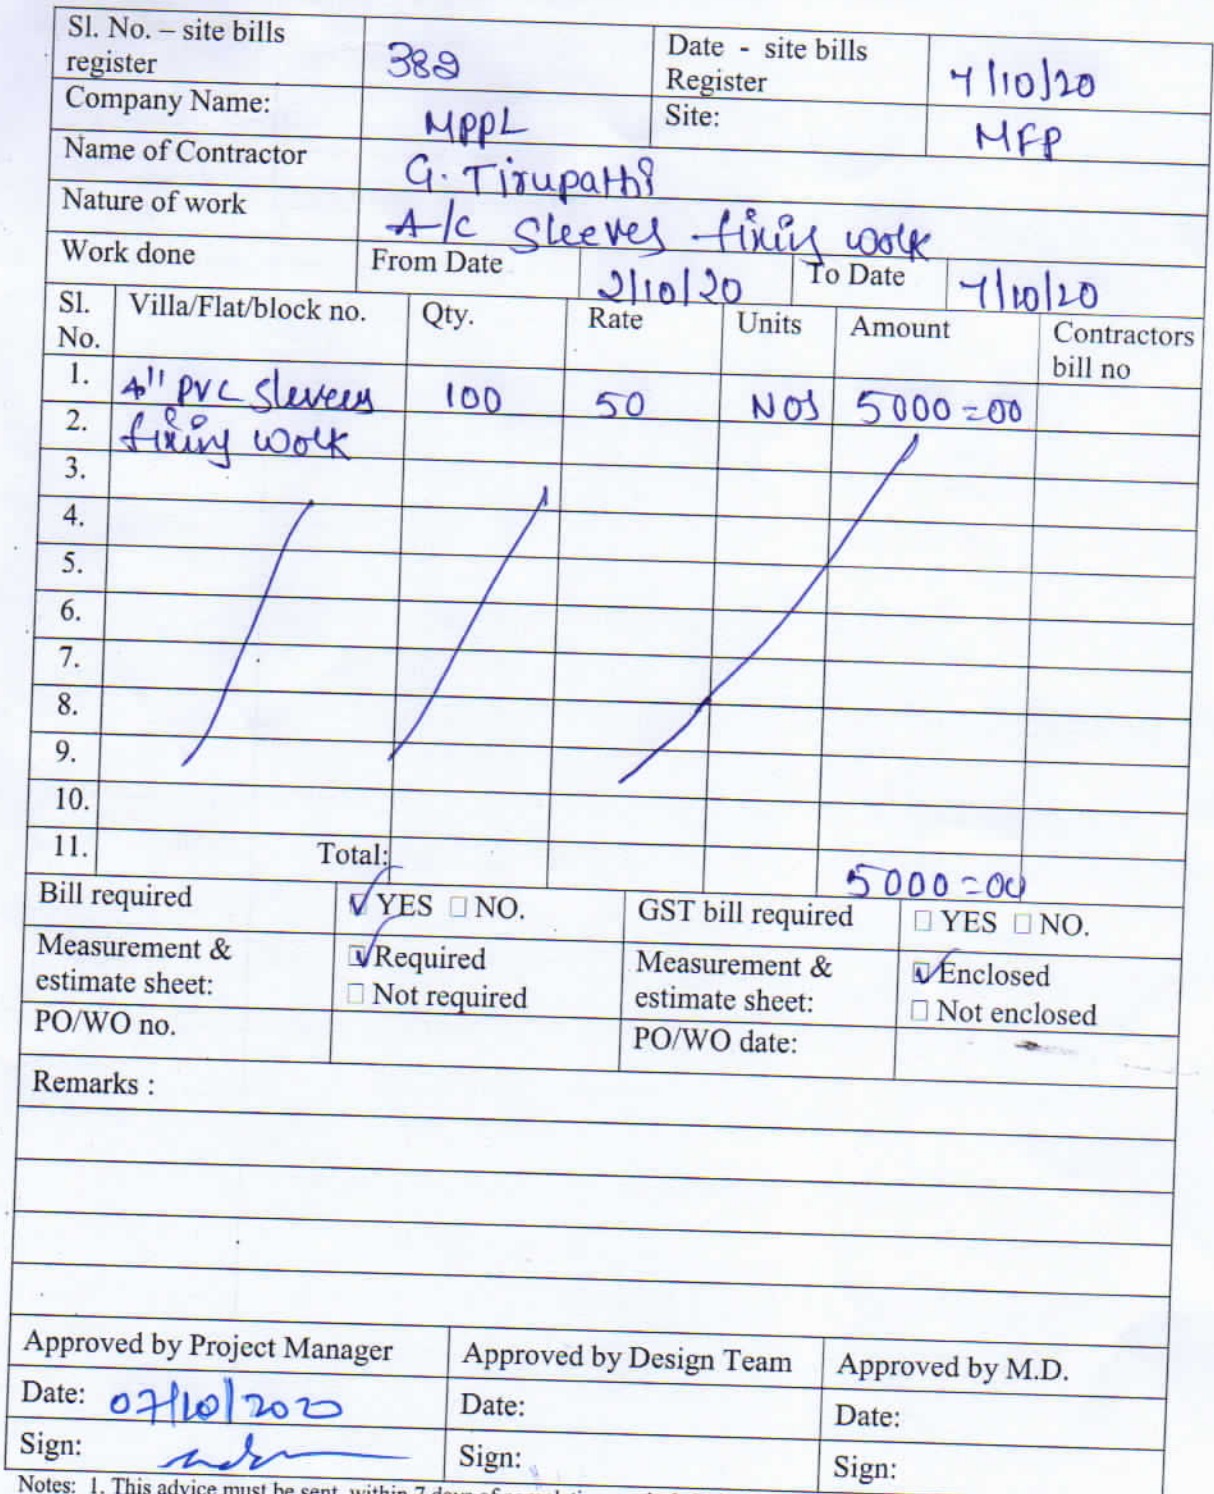 Sl. No. – site bills register 382 Date - site bills Register 7/10/20
Company Name: MPPL Site: MFP
Name of Contractor G. Tirupathi
Nature of work A/c sleeves fixing work
Work done From Date 2/10/20 To Date 7/10/20
Sl. No. Villa/Flat/block no. Qty. Rate Units Amount Contractors bill no
1. 4" PVC slevees 100 50 NOS 5000=00
2. fixing work
3.
4.
5.
6.
7.
8.
9.
10.
11. Total: 5000=00
Bill required ☑ YES ☐ NO. GST bill required ☐ YES ☐ NO.
Measurement & estimate sheet: ☑ Required ☐ Not required Measurement & estimate sheet: ☑ Enclosed ☐ Not enclosed
PO/WO no. PO/WO date:
Remarks :
Approved by Project Manager Approved by Design Team Approved by M.D.
Date: 07/10/2020 Date: Date:
Sign: Sign: Sign:
Notes: 1. This advice must be sent within 7 days of